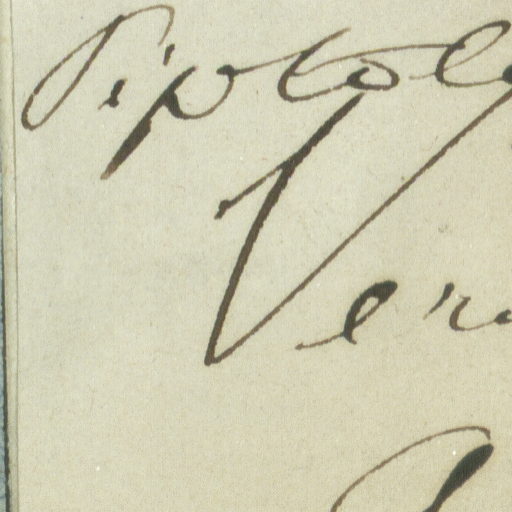 Piptole
Ver